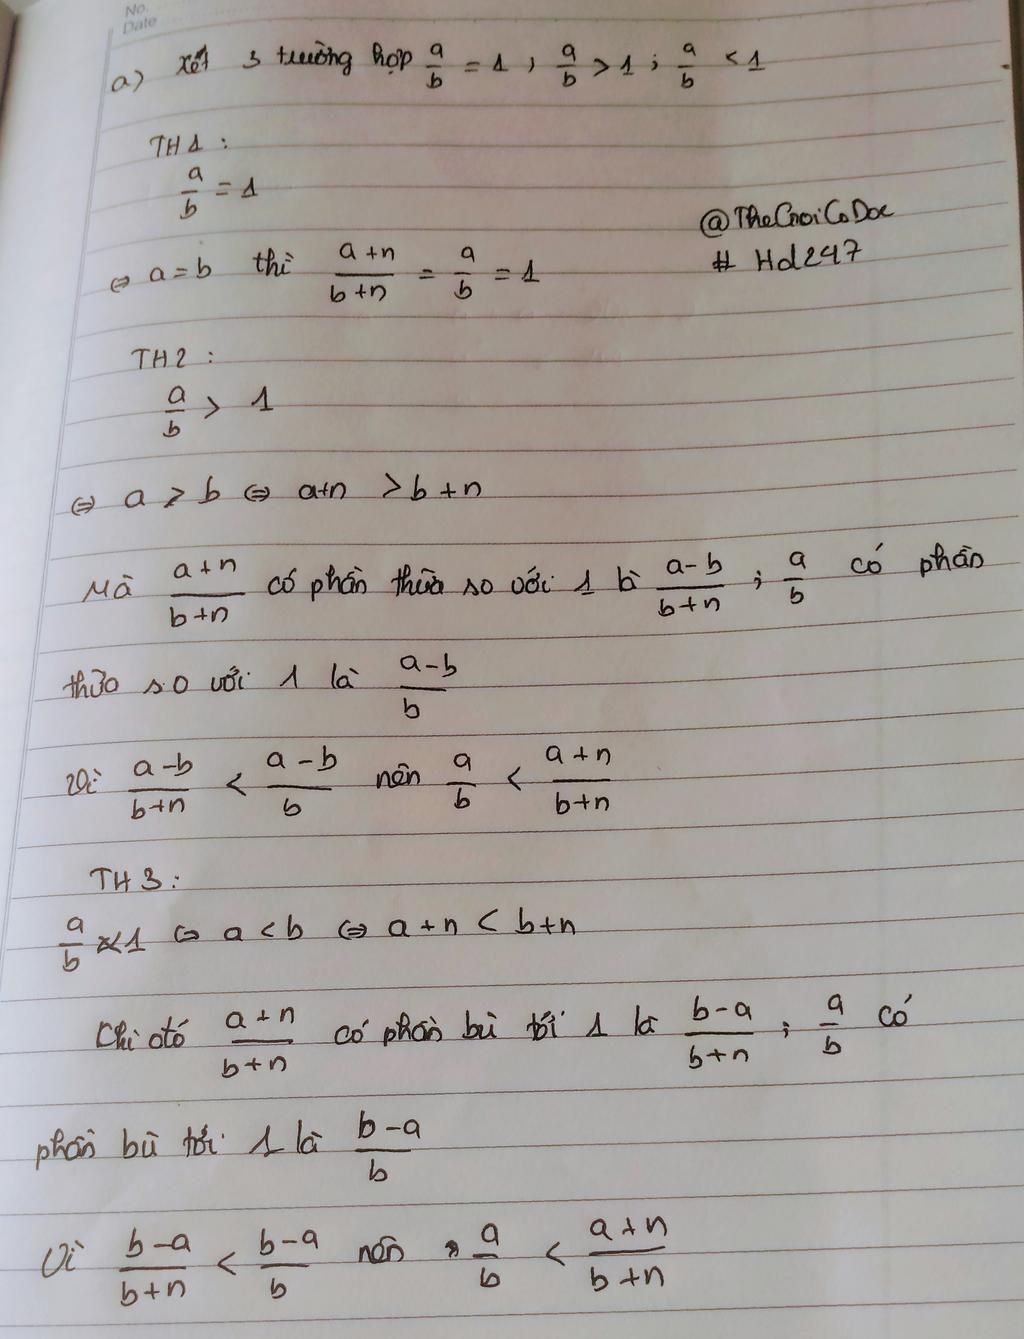 No.
Date
a) Xét 3 trường hợp a/b = 1 ; a/b > 1 ; a/b < 1
TH1 :
a/b = 1
⇔ a = b thì (a+n)/(b+n) = a/b = 1
@TheGioiCoDoc
# Hd247
TH2 :
a/b > 1
⇔ a > b ⇔ a+n > b+n
Mà (a+n)/(b+n) có phần thừa so với 1 là (a-b)/(b+n) ; a/b có phần
thừa so với 1 là (a-b)/b
Vì (a-b)/(b+n) < (a-b)/b nên a/b < (a+n)/(b+n)
TH3 :
a/b < 1 ⇔ a < b ⇔ a+n < b+n
Khi đó (a+n)/(b+n) có phần bù tới 1 là (b-a)/(b+n) ; a/b có
phần bù tới 1 là (b-a)/b
Vì (b-a)/(b+n) < (b-a)/b nên a/b < (a+n)/(b+n)